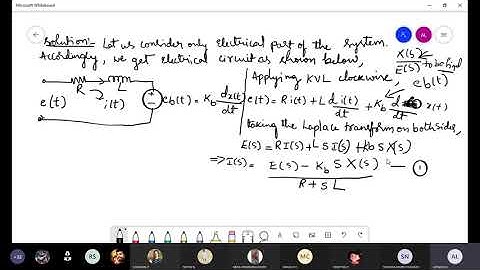 Microsoft Whiteboard
Solution:- Let us consider only electrical part of the system.
Accordingly, we get electrical circuit as shown below,
X(s)
E(s) to be find
R L
e(t) i(t) + - eb(t) = Kb dx(t)/dt
Applying KVL clockwise, eb(t)
e(t) = Ri(t) + L di(t)/dt + Kb d/dt x(t)
taking the Laplace transform on both sides,
E(s) = R I(s) + L S I(s) + Kb S X(s)
=> I(s) = E(s) - Kb S X(s) — 1
R + S L
RS
MC
SN
AL